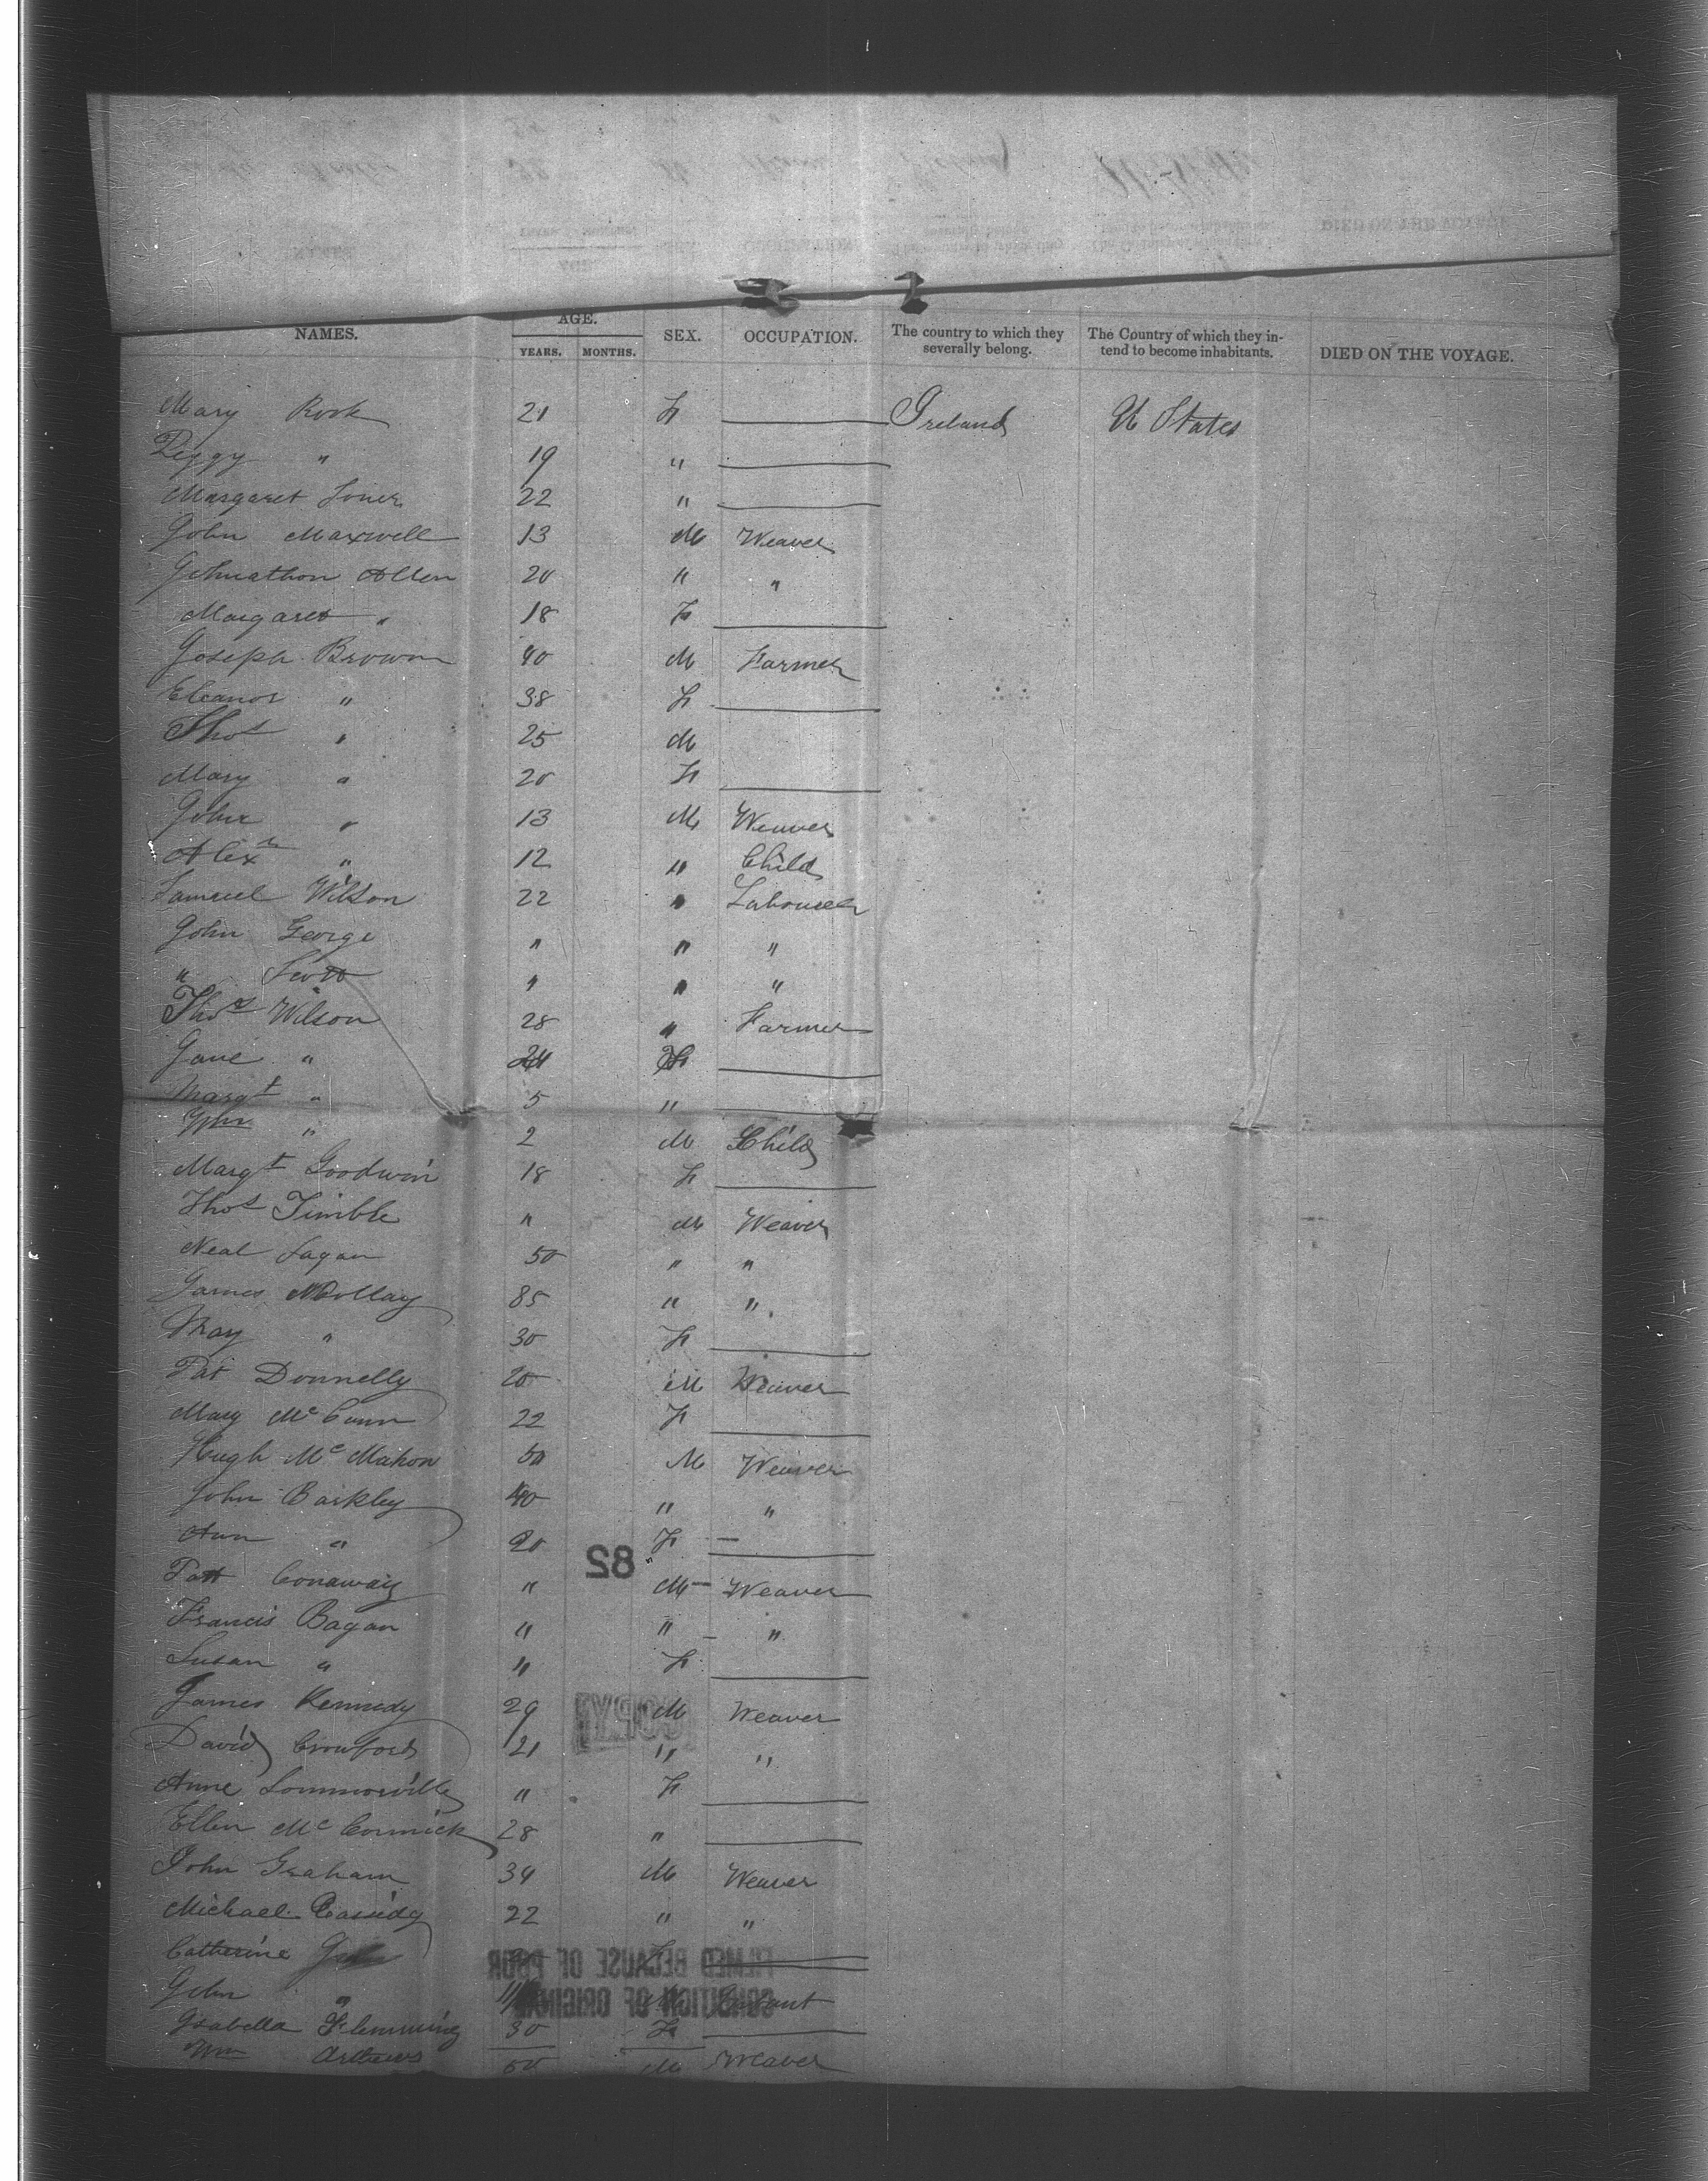 NAMES. AGE. SEX. OCCUPATION. The country to which they severally belong. The Country of which they intend to become inhabitants. DIED ON THE VOYAGE.
YEARS. MONTHS.
Mary Rook 21 F Ireland U States
Peggy " 19 "
Margaret 22 "
John Maxwell 13 M Weaver
Johnathon Allen 20 " "
Margaret " 18 F
Joseph Brown 40 M Farmer
Eleanor " 38 F
Thos " 25 M
Mary " 20 F
John " 13 M Weaver
Alexr " 12 " Child
Samuel Wilson 22 " Labourer
John George " " "
" Scott " " "
Thos Wilson 28 " Farmer
Jane " 24 F
Margt " 5 "
John " 2 M Child
Margt Goodwin 18 F
Thos Timble " M Weaver
Neal Fagan 50 " "
James 85 " "
May " 30 F
Pat Donnelly 20 M Weaver
Mary Mc Cann 22 F
Hugh Mc Mahon 50 M Weaver
John Barkley 40 " "
Ann " 20 F
82
Patt Conaway " M Weaver
Francis Bagan " " "
Susan " " F
James Kennedy 29 M Weaver
COPY
David Crawford 21 " "
Anne Sommorville " F
Ellen Mc Cormick 28 "
John Graham 34 M Weaver
Michael Cassidy 22 " "
Catherine F
FILMED BECAUSE OF POOR
John " M
CONDITION OF ORIGINAL
Isabella Flemming 30 F
Wm Arthews 50 M Weaver